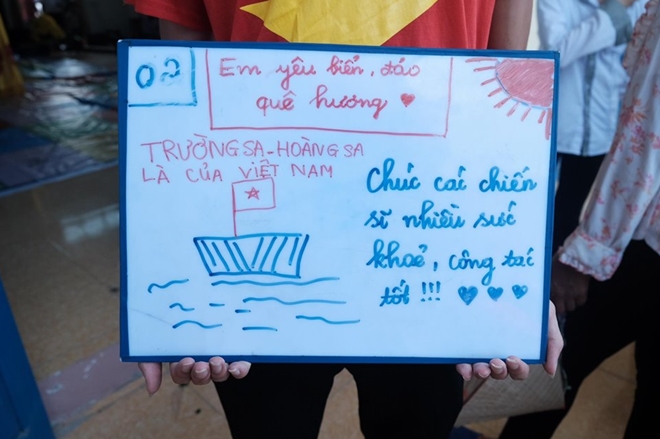 03
Em yêu biển, đảo
quê hương
TRƯỜNG SA-HOÀNG SA
LÀ CỦA VIỆT NAM
Chúc các chiến
sĩ nhiều sức
khoẻ, công tác
tốt!!!